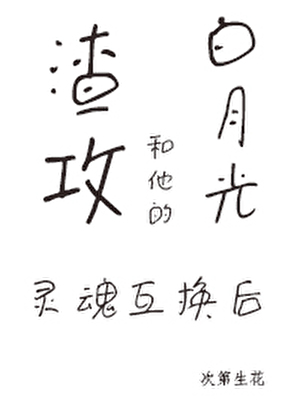 渣攻
和他的
白月光
灵魂互换后
次第生花